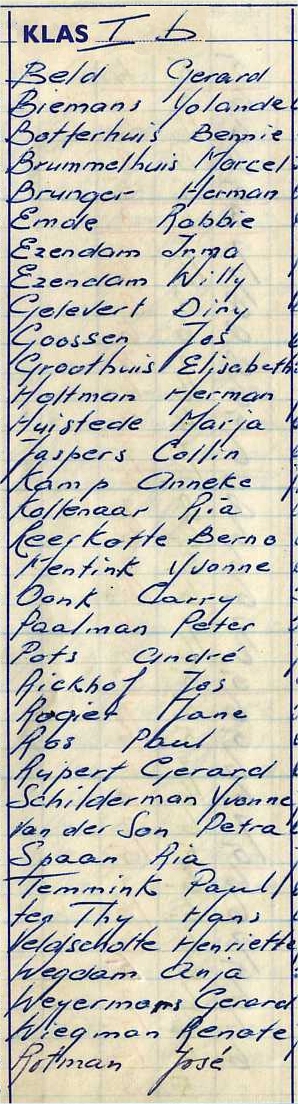 KLAS I b
Beld Gerard
Biemans Yolande
Botterhuis Bennie
Brummelhuis Marcel
Brunger Herman
Emde Robbie
Ezendam Irma
Ezendam Willy
Gelevert Diny
Goossen Jos
Groothuis Elisabeth
Haltman Herman
Huistede Marja
Jaspers Collin
Kamp Anneke
Kollenaar Ria
Leerkotte Berno
Mentink Yvonne
Oonk Carry
Paalman Peter
Pots André
Rickhof Jos
Rogiet Jane
Ros Paul
Rupert Gerard
Schilderman Yvonne
van der Son Petra
Spaan Ria
Temmink Paul
ten Thy Hans
Veldscholte Henriette
Wegdam Anja
Weyermans Gerard
Wiegman Renate
Rotman José